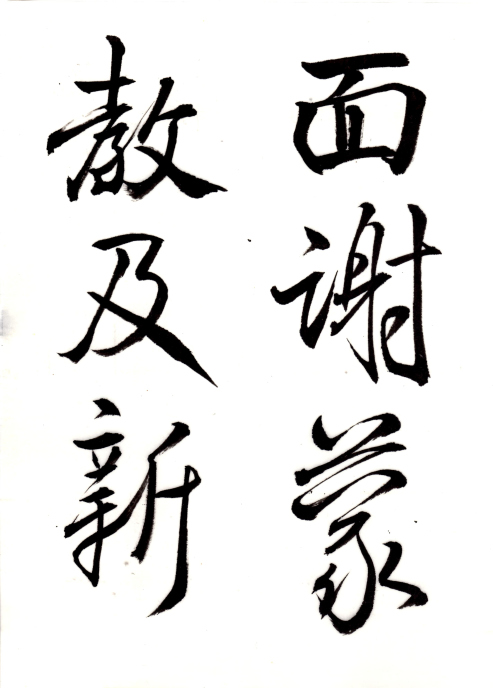 面謝蒙
教及新